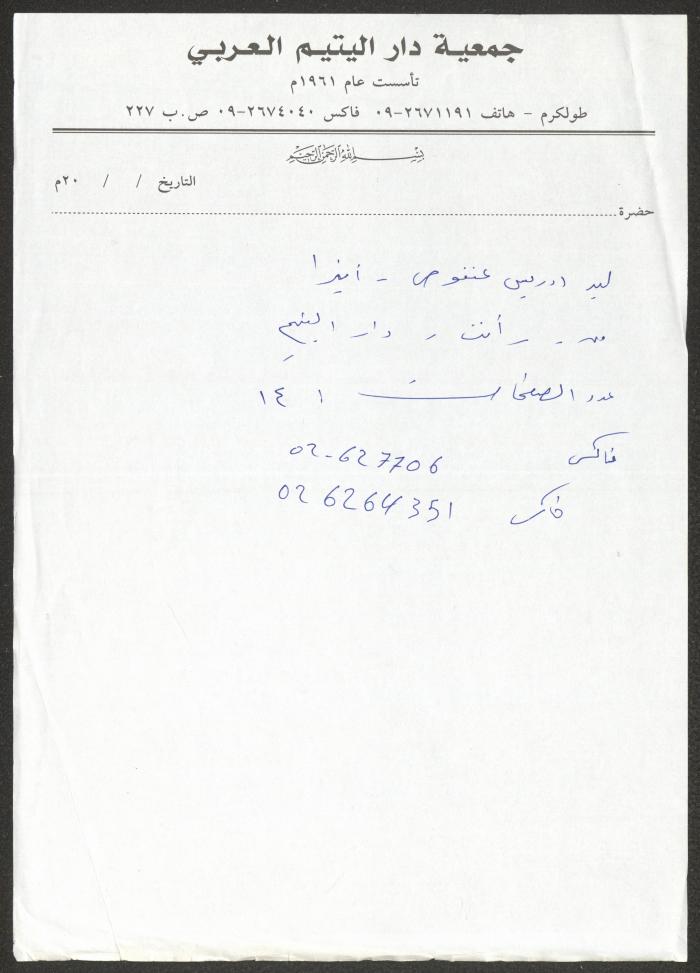 جمعية دار اليتيم العربي
تأسست عام ١٩٦١م
طولكرم - هاتف ٢٦٧١١٩١-٠٩ فاكس ٢٦٧٤٠٤٠-٠٩ ص.ب ٢٢٧
بسم الله الرحمن الرحيم
التاريخ / / ٢٠م
حضرة
ادريس -
رأفت دار اليتيم
عدد الصفحات ١٤١
فاكس 02-627706
فاكس 02 6264351